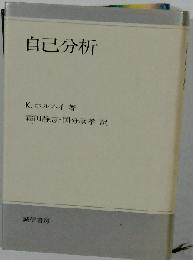 自己分析
K.ホルナイ 著
霜田静志・国分康孝 訳
誠信書房